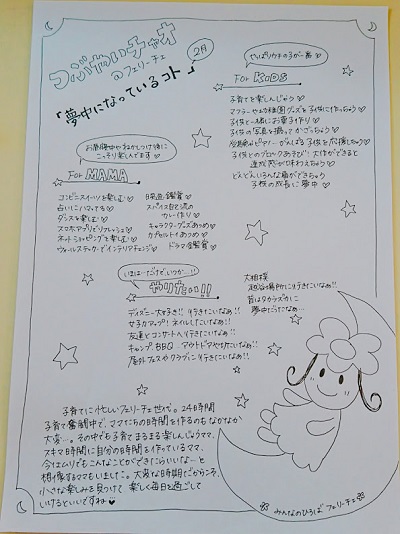 つぶやいチャオ
のフェリーチェ
2月
「夢中になっているコト」
やっぱりウチの子が一番♡
For KIDS
子育てを楽しんじゅう♡
子供と一緒にお菓子作り♡
子供の写真を撮ってかざっちゅう♡
子供とのブロックあそび! 大作ができると
達成感が味わえちゃう♡
どんどんいろんな顔がでてきちゃう
子供の成長に夢中♡
お昼寝中やねかしつけ後に
こっそり楽しんでます♡
For MAMA
コンビニスイーツを楽しむ♡
占いにハマってる♡
ダンスを楽しむ♡
スマホアプリでリフレッシュ♡
ネットショッピングを楽しむ♡
ウォールステッカーでインテリアチェンジ♡
映画鑑賞♡
スパイス
カレー作り♡
キャラクターグッズあつめ♡
カプセルトイあつめ♡
ドラマ鑑賞♡
いまは…だけど、いつか…!!
やりたい!!
ディズニー大好き!! 行きたいなぁ!!
女子力アップ! ネイルしたいなぁ!!
友達とコンサートへ行きたいなぁ!!
キャンプ、BBQ アウトドアやりたいなぁ!!
屋外フェスやクラブイン行きたいなぁ!!
大相撲
越谷場所に行きたいなぁ!!
昔はタカラヅカに
夢中だったなぁ…
子育てに忙しいフェリーチェ世代。24時間
子育て奮闘中で、ママたちの時間を作るのもなかなか
大変…。その中でも子育てまるまる楽しんじゃうママ、
スキマ時間に自分の時間を作っているママ、
今はムリでもこんなことができたらいいな…と
想像するママもいました。大変な時期だからこそ、
小さな楽しみを見つけて 楽しく毎日を過ごして
いけるといいですね♥
みんなのひろば フェリーチェ